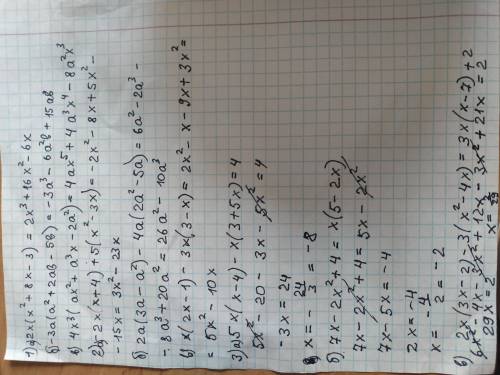 1) а) 2x(x² + 8x - 3) = 2x³ + 16x² - 6x
б) -3a(a² + 2ab - 5b) = -3a³ - 6a²b + 15ab
в) 4x³(ax² + a³x - 2a²) = 4ax⁵ + 4a³x⁴ - 8a²x³
2) а) -2x(x+4) + 5(x² - 3x) = -2x² - 8x + 5x² -
- 15x = 3x² - 23x
б) 2a(3a - a²) - 4a(2a² - 5a) = 6a² - 2a³ -
- 8a³ + 20a² = 26a² - 10a³
в) x(2x - 1) - 3x(3 - x) = 2x² - x - 9x + 3x² =
= 5x² - 10x
3) а) 5x(x-4) - x(3+5x) = 4
5x² - 20 - 3x - 5x² = 4
-3x = 24
x = - 24/3 = -8
б) 7x - 2x² + 4 = x(5 - 2x)
7x - 2x² + 4 = 5x - 2x²
7x - 5x = -4
2x = -4
x = -4/2 = -2
в) 2x(3x - 2) - 3(x² - 4x) = 3x(x - 7) + 2
6x² - 4x - 3x² + 12x - 3x² + 21x = 2
29x = 2
x = 2/29